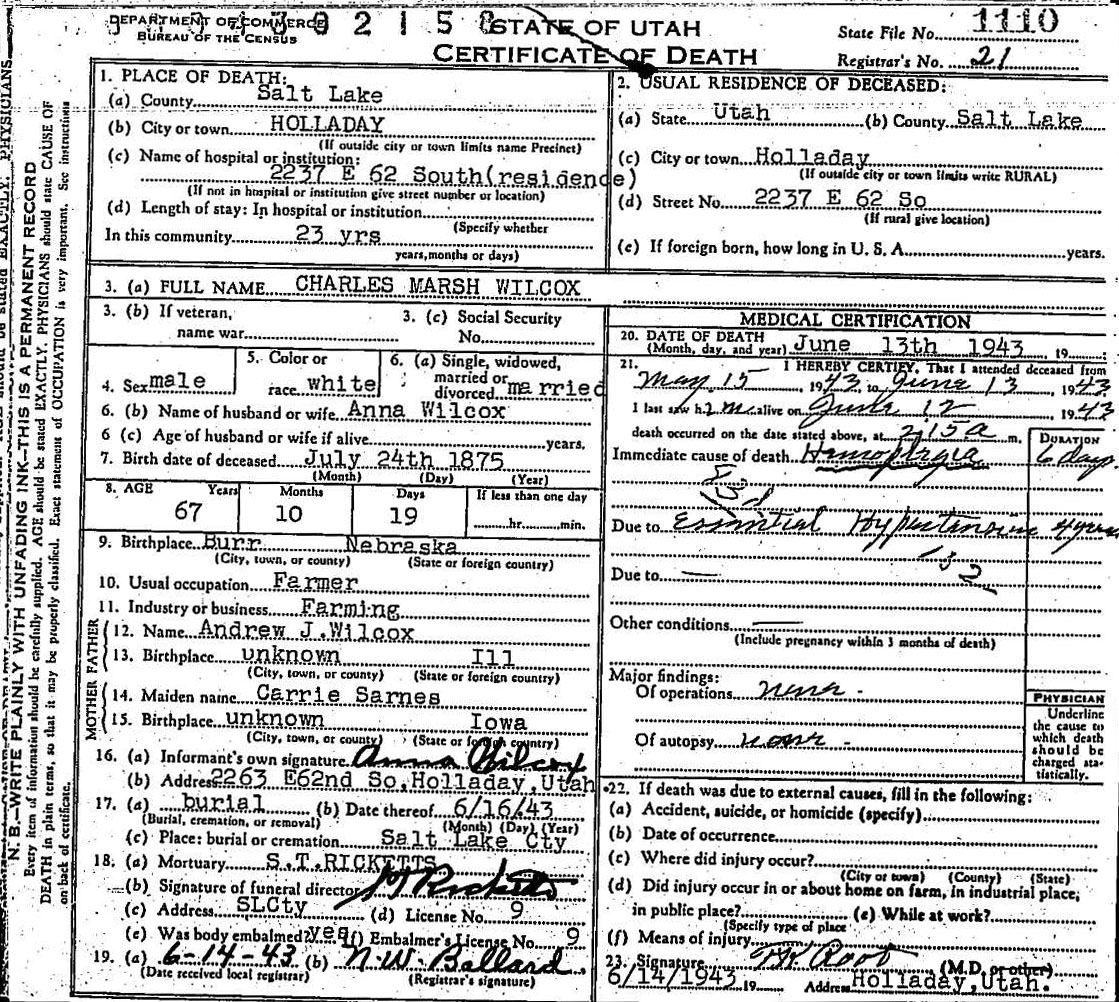 DEPARTMENT OF COMMERCE
BUREAU OF THE CENSUS
STATE OF UTAH
CERTIFICATE OF DEATH
State File No. 1110
Registrar's No. 21
N. B.—WRITE PLAINLY WITH UNFADING INK—THIS IS A PERMANENT RECORD
Every item of information should be carefully supplied. AGE should be stated EXACTLY. PHYSICIANS should state CAUSE OF
DEATH in plain terms, so that it may be properly classified. Exact statement of OCCUPATION is very important. See instructions
on back of certificate.
1. PLACE OF DEATH:
(a) County Salt Lake
(b) City or town HOLLADAY
(If outside city or town limits name Precinct)
(c) Name of hospital or institution:
2237 E 62 South(residence)
(If not in hospital or institution give street number or location)
(d) Length of stay: In hospital or institution
(Specify whether
In this community 23 yrs
years, months or days)
2. USUAL RESIDENCE OF DECEASED:
(a) State Utah (b) County Salt Lake
(c) City or town Holladay
(If outside city or town limits write RURAL)
(d) Street No. 2237 E 62 So
(If rural give location)
(e) If foreign born, how long in U. S. A. years.
3. (a) FULL NAME CHARLES MARSH WILCOX
3. (b) If veteran,
name war
3. (c) Social Security
No.
4. Sex male
5. Color or
race white
6. (a) Single, widowed,
married or
divorced married
6. (b) Name of husband or wife Anna Wilcox
6 (c) Age of husband or wife if alive years.
7. Birth date of deceased July 24th 1875
(Month) (Day) (Year)
8. AGE Years Months Days If less than one day
67 10 19 hr. min.
9. Birthplace Burr Nebraska
(City, town, or county) (State or foreign country)
10. Usual occupation Farmer
11. Industry or business Farming
FATHER
12. Name Andrew J.Wilcox
13. Birthplace unknown Ill
(City, town, or county) (State or foreign country)
MOTHER
14. Maiden name Carrie Sarnes
15. Birthplace unknown Iowa
(City, town, or county) (State or foreign country)
16. (a) Informant's own signature Anna Wilcox
(b) Address 2263 E62nd So,Holladay,Utah
17. (a) burial (b) Date thereof 6/16/43
(Burial, cremation, or removal) (Month) (Day) (Year)
(c) Place: burial or cremation Salt Lake Cty
18. (a) Mortuary S.T.RICKETTS
(b) Signature of funeral director Ricketts
(c) Address SLCty (d) License No. 9
(e) Was body embalmed? yes (f) Embalmer's License No. 9
19. (a) 6-14-43 (b) N.W. Ballard
(Date received local registrar) (Registrar's signature)
MEDICAL CERTIFICATION
20. DATE OF DEATH
(Month, day, and year) June 13th 1943 19
21. I HEREBY CERTIFY, That I attended deceased from
May 15, 1943 to June 13 1943
I last saw him alive on June 12, 1943
death occurred on the date stated above, at 2:15a m.
DURATION
Immediate cause of death 6 days
Due to Essential Hypertension 4 years
Due to —
Other conditions —
(Include pregnancy within 3 months of death)
Major findings:
Of operations none -
Of autopsy none -
PHYSICIAN
Underline
the cause to
which death
should be
charged sta-
tistically.
22. If death was due to external causes, fill in the following:
(a) Accident, suicide, or homicide (specify)
(b) Date of occurrence
(c) Where did injury occur?
(City or town) (County) (State)
(d) Did injury occur in or about home on farm, in industrial place,
in public place? (e) While at work?
(Specify type of place
(f) Means of injury
23. Signature Root (M.D. or other)
6/14/1943 19 Address Holladay,Utah.